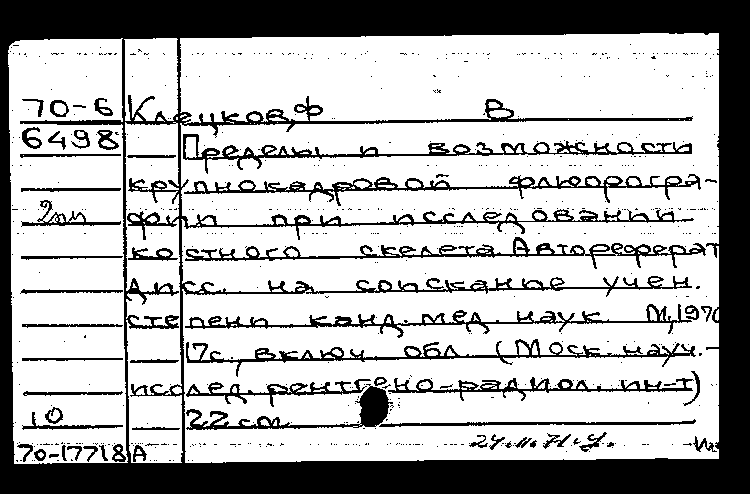 70-6 Клецков, Ф В
6498 Пределы и возможности
крупнокадровой флюорогра-
2пп фии при исследовании
костного скелета. Автореферат
дисс. на соискание учен.
степени канд. мед. наук. М, 1970
17с., включ. обл. (Моск. науч.-
исслед. рентгено-радиол. ин-т)
10 22 см.
24.11.71.
70-17718А